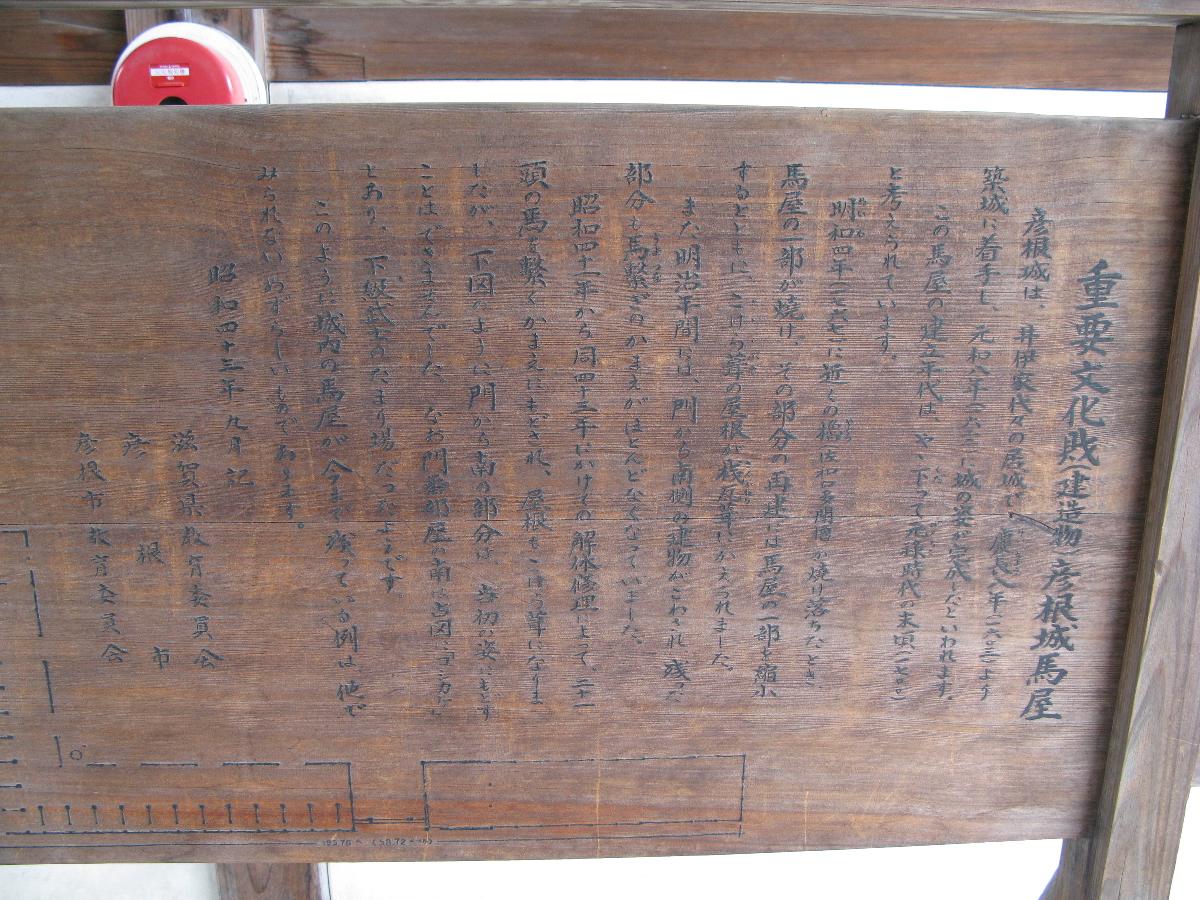 重要文化財(建造物)彦根城馬屋
彦根城は、井伊家代々の居城で、慶長八年(一六〇三)より
築城に着手し、元和八年(一六二二)に城の姿が完成したといわれます。
この馬屋の建立年代は、やゝ下って元禄時代の末頃(一七〇〇)
と考えられています。
明和四年(一七六七)に近くの櫓佐和口多聞櫓が焼け落ちたとき
馬屋の一部が焼け、その部分の再建には馬屋の一部を縮小
するとともに、こけら葺の屋根が桟瓦葺にかえられました。
また明治年間には、門から南側の建物がこわされ残った
部分も馬繋ぎのかまえがほとんどなくなっていました。
昭和四十一年から同四十三年にかけての解体修理によって、二十一
頭の馬を繋ぐかまえにもどされ、屋根もこけら葺になりま
したが、下図のように門から南の部分は、当初の姿にもどす
ことはできませんでした。なお門番部屋の南は古図に
とあり、下級武士のたまり場だったようです。
このように城内の馬屋が今まで残っている例は他で
みられないめずらしいものであります。
昭和四十三年九月記
滋賀県教育委員会
彦根市
彦根市教育委員会